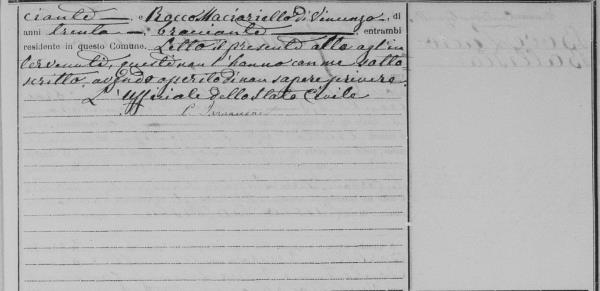 ciante — e Rocco Maciariello di Vincenzo, di
anni trenta —, bracciante — entrambi
residente in questo Comune. Letto il presente atto agl'in
tervenuti, questi non l'hanno con me sotto
scritto avendo asserito di non sapere scrivere.
L'Uffiziale dello Stato Civile